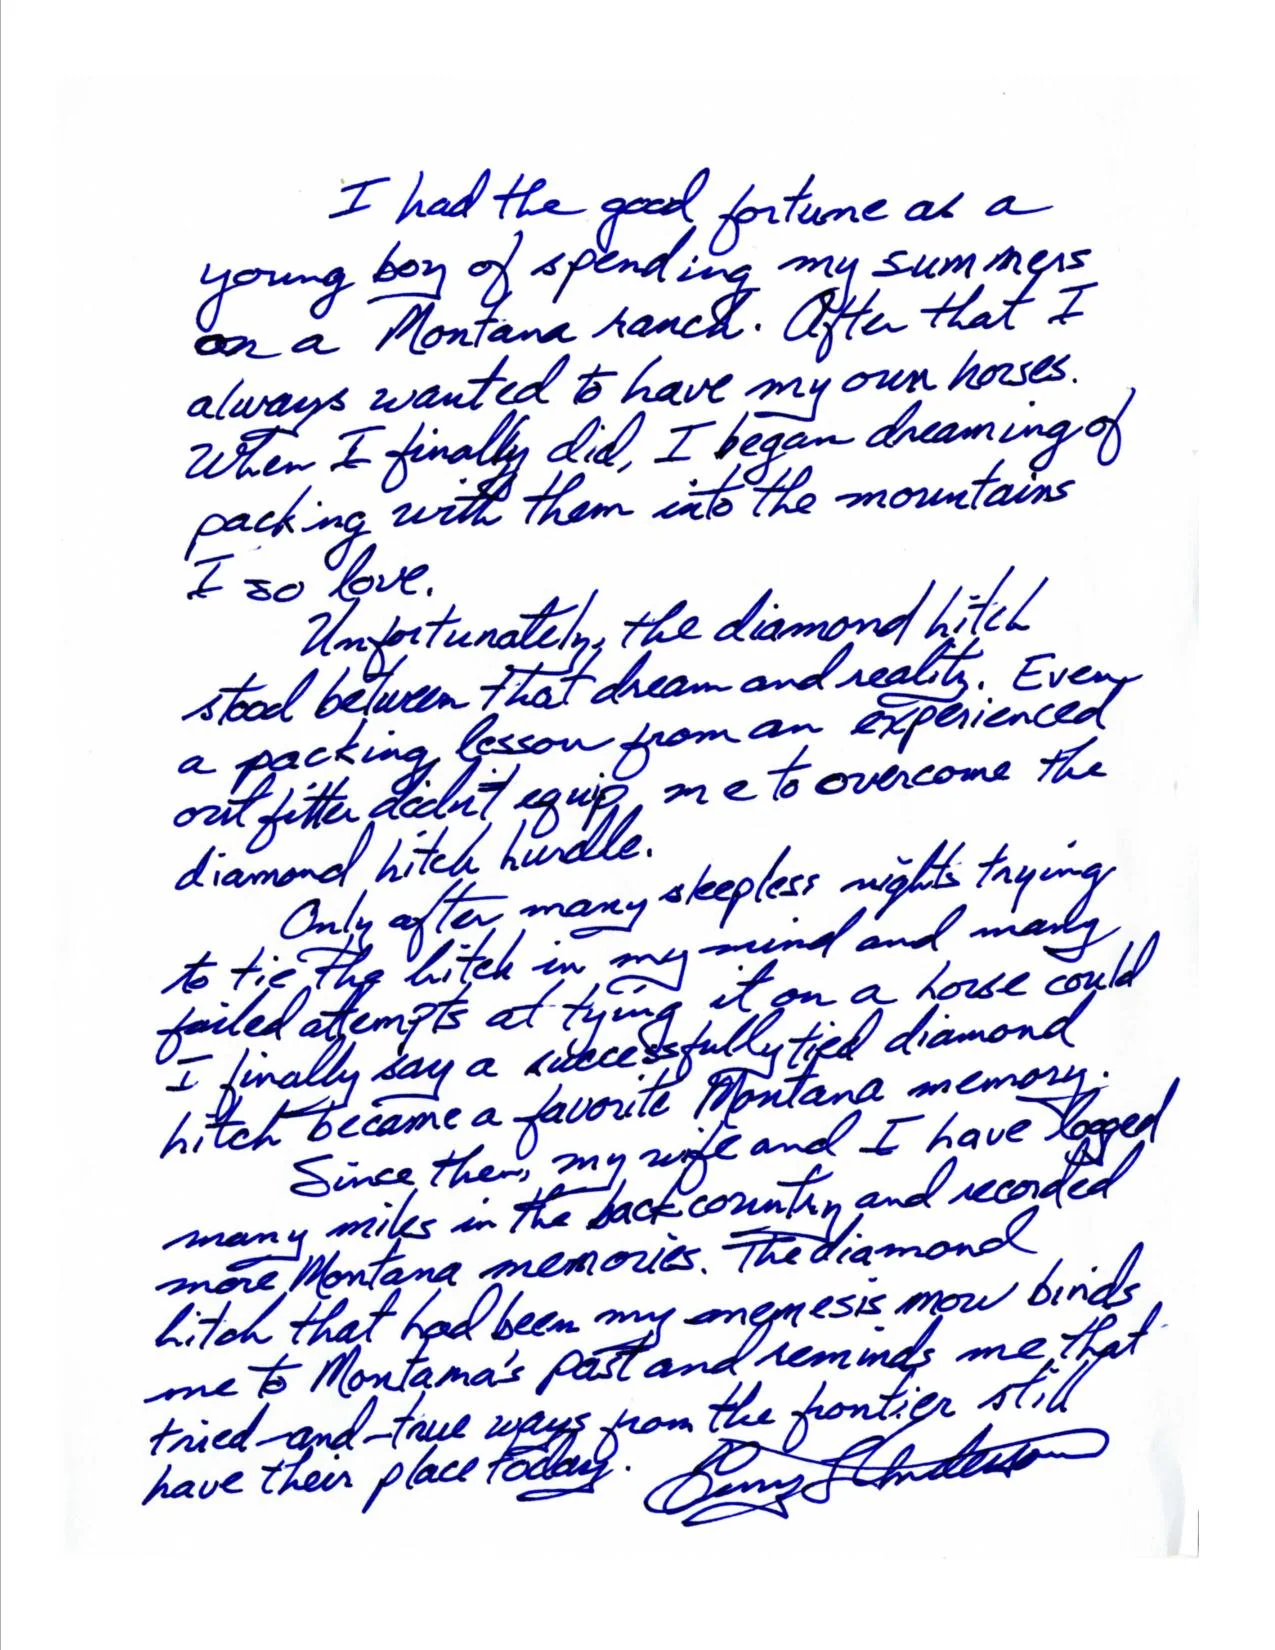 I had the good fortune as a
young boy of spending my summers
on a Montana ranch. After that I
always wanted to have my own horses.
When I finally did, I began dreaming of
packing with them into the mountains
I so love.
Unfortunately, the diamond hitch
stood between that dream and reality. Even
a packing lesson from an experienced
outfitter didn't equip me to overcome the
diamond hitch hurdle.
Only after many sleepless nights trying
to tie the hitch in my mind and many
failed attempts at tying it on a horse could
I finally say a successfully tied diamond
hitch became a favorite Montana memory.
Since then, my wife and I have logged
many miles in the backcountry and recorded
more Montana memories. The diamond
hitch that had been my nemesis now binds
me to Montana's past and reminds me that
tried-and-true ways from the frontier still
have their place today. Anderson